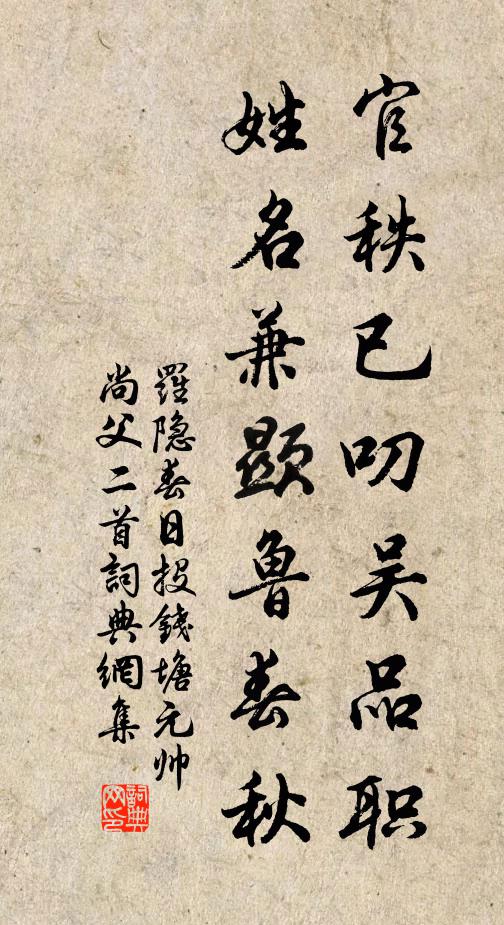 官秩已叨吴品职
姓名兼显鲁春秋
羅隐春日投錢塘元帅
尚父二首詞典網集
詞典网印